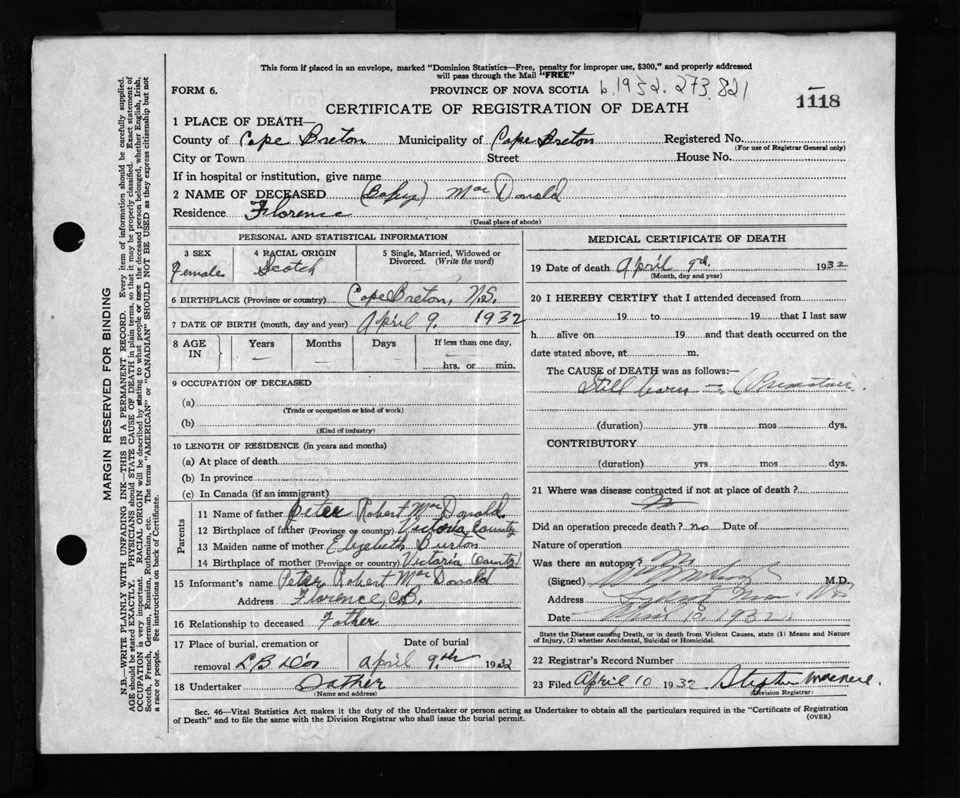 This form if placed in an envelope, marked "Dominion Statistics—Free, penalty for improper use, $300," and properly addressed
will pass through the Mail "FREE"
FORM 6.
PROVINCE OF NOVA SCOTIA b.1932.273.821
1118
CERTIFICATE OF REGISTRATION OF DEATH
1 PLACE OF DEATH—
County of Cape Breton Municipality of Cape Breton Registered No.
(For use of Registrar General only)
City or Town Street House No.
If in hospital or institution, give name
2 NAME OF DECEASED (Baby) Mac Donald
Residence Florence
(Usual place of abode)
PERSONAL AND STATISTICAL INFORMATION
3 SEX
Female
4 RACIAL ORIGIN
Scotch
5 Single, Married, Widowed or
Divorced. (Write the word)
6 BIRTHPLACE (Province or country) Cape Breton, N.S.
7 DATE OF BIRTH (month, day and year) April 9. 1932
8 AGE IN Years Months Days If less than one day,
— — — —
hrs. or min.
9 OCCUPATION OF DECEASED
(a)
(Trade or occupation or kind of work)
(b)
(Kind of industry)
10 LENGTH OF RESIDENCE (in years and months)
(a) At place of death
(b) In province
(c) In Canada (if an immigrant)
Parents
11 Name of father Peter Robert Mac Donald
12 Birthplace of father (Province or country) Victoria County
13 Maiden name of mother Elizabeth Burton
14 Birthplace of mother (Province or country) Victoria (County)
15 Informant's name Peter Robert Mac Donald
Address Florence, C.B.
16 Relationship to deceased Father
17 Place of burial, cremation or
removal
Date of burial
April 9th 1932
18 Undertaker Father
(Name and address)
MEDICAL CERTIFICATE OF DEATH
19 Date of death April 9th. 1932
(Month, day and year)
20 I HEREBY CERTIFY that I attended deceased from
19 to 19 that I last saw
h alive on 19 and that death occurred on the
date stated above, at m.
The CAUSE of DEATH was as follows:—
Still born — (Premature.
(duration) yrs mos dys.
CONTRIBUTORY
(duration) yrs mos dys.
21 Where was disease contracted if not at place of death?
Did an operation precede death? no Date of
Nature of operation
Was there an autopsy? No
(Signed) M.D.
Address
Date 1932
State the Disease causing Death, or in death from Violent Causes, state (1) Means and Nature
of Injury, (2) whether Accidental, Suicidal or Homicidal.
22 Registrar's Record Number
23 Filed April 10 1932 Stephen
Division Registrar.
Sec. 46—Vital Statistics Act makes it the duty of the Undertaker or person acting as Undertaker to obtain all the particulars required in the "Certificate of Registration
of Death" and to file the same with the Division Registrar who shall issue the burial permit.
(OVER)
MARGIN RESERVED FOR BINDING
N.B.—WRITE PLAINLY WITH UNFADING INK—THIS IS A PERMANENT RECORD. Every item of information should be carefully supplied.
AGE should be stated EXACTLY. PHYSICIANS should STATE CAUSE OF DEATH in plain terms, so that it may be properly classified. Exact statement of
OCCUPATION is very important. RACIAL ORIGIN will be described by stating to what people or race the deceased person belonged, whether English, Irish,
Scotch, French, German, Russian, Ruthenian, etc. The terms "AMERICAN" or "CANADIAN" SHOULD NOT BE USED as they express citizenship but not
a race or people. See instructions on back of Certificate.